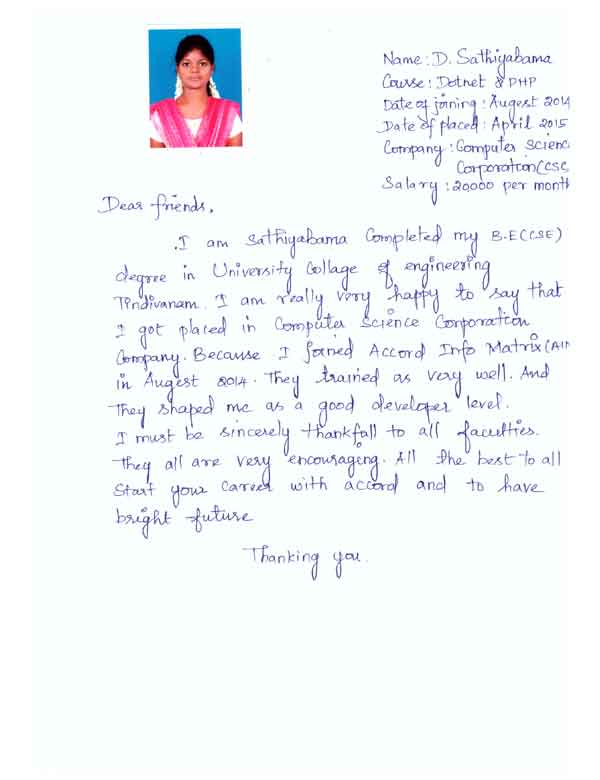 Name : D. Sathiyabama
Course : Dotnet & PHP
Date of joining : August 2014
Date of placed : April 2015
Company : Computer Scienc
Corporation (CSC
Salary : 20000 per month
Dear friends,
I am Sathiyabama Completed my B.E(CSE)
degree in University Collage of engineering
Tindivanam. I am really very happy to say that
I got placed in Computer Science Corporation
Company. Because I joined Accord Info Matrix(AIM
in Augest 2014. They trained as very well. And
They shaped me as a good developer level.
I must be sincerely thankfull to all faculties.
They all are very encourageing. All the best to all
Start your career with accord and to have
bright future
Thanking you.